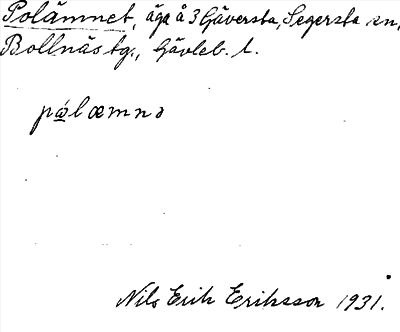 Polämnet, äga å 3 Gäversta, Segersta sn,
Bollnäs tg., Gävleb. l.
pó̱læmnə
Nils Erik Eriksson 1931.